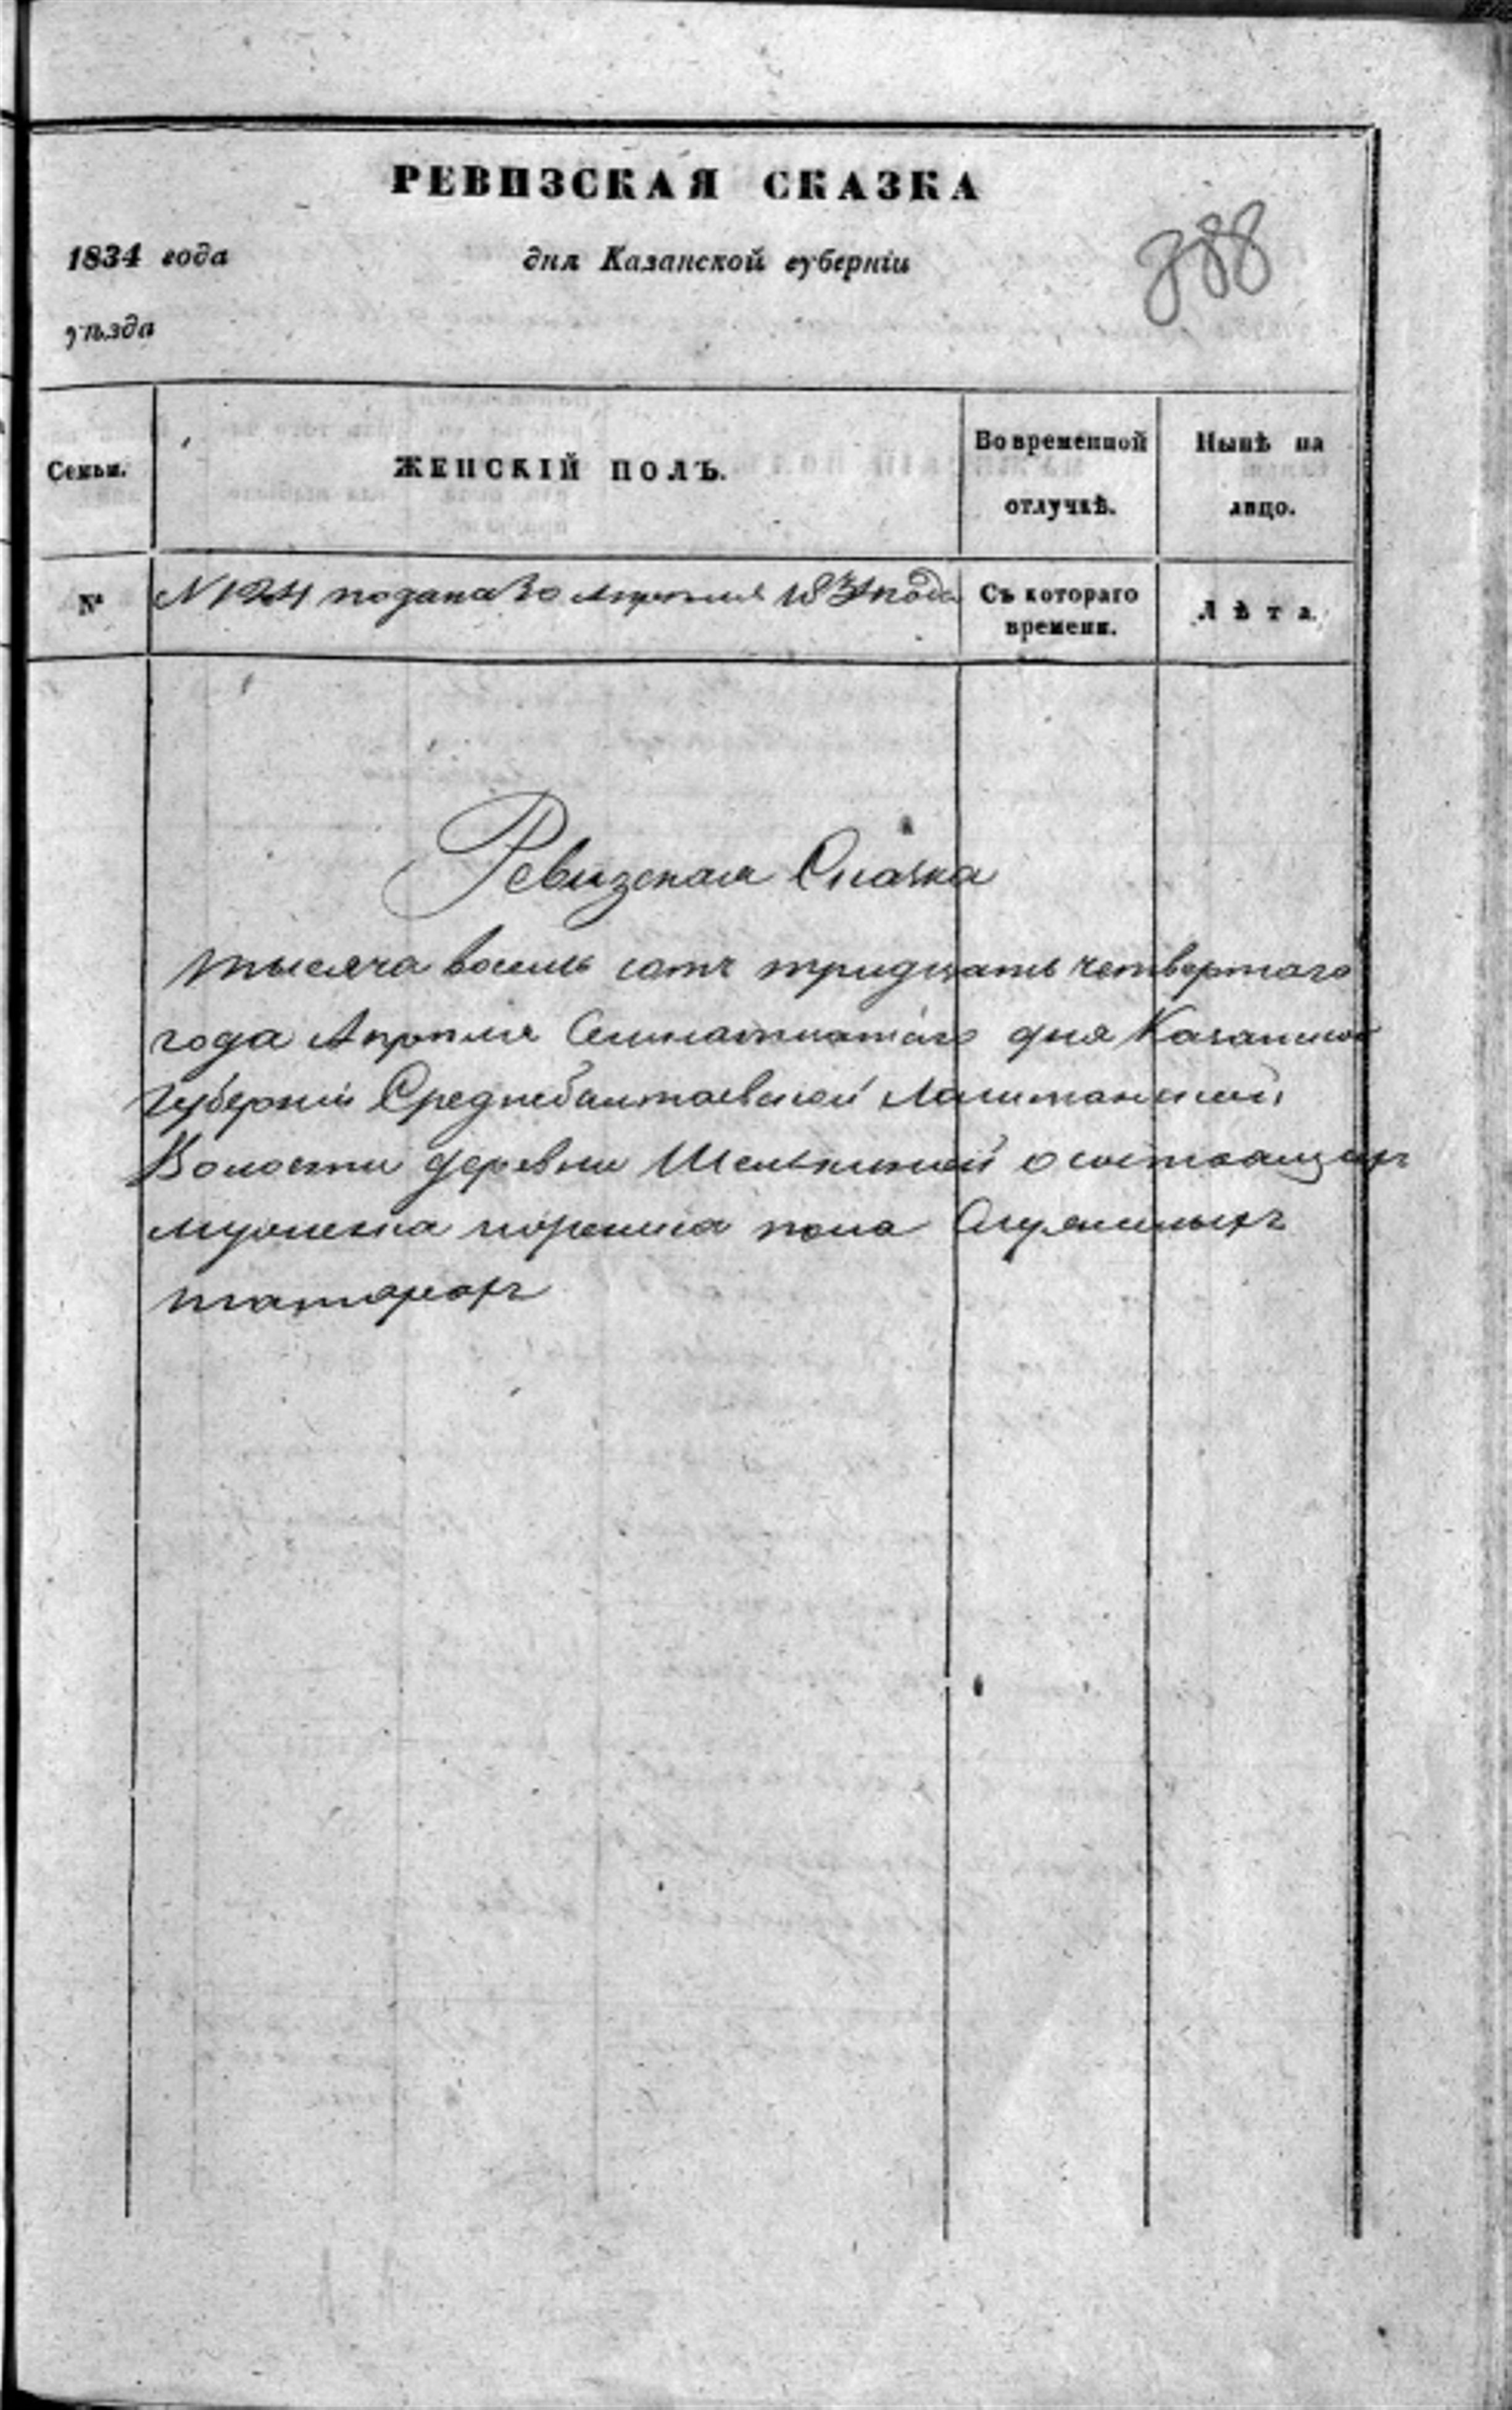 РЕВИЗСКАЯ СКАЗКА
388
1834 года дня Казанской губерніи
уѣзда
Семьи. ЖЕНСКІЙ ПОЛЪ. Во временной отлучкѣ. Нынѣ на лицо.
№ N 124 подана 30 Апреля 1834 года Съ котораго времени. Лѣта.
Ревизская Сказка
тысяча восемь сотъ тридцать четвертаго
года Апреля дня Казанской
Губерніи Среднебалтаевской
Волости деревни о состоящихъ
мужеска и женска пола Служилыхъ
татарахъ